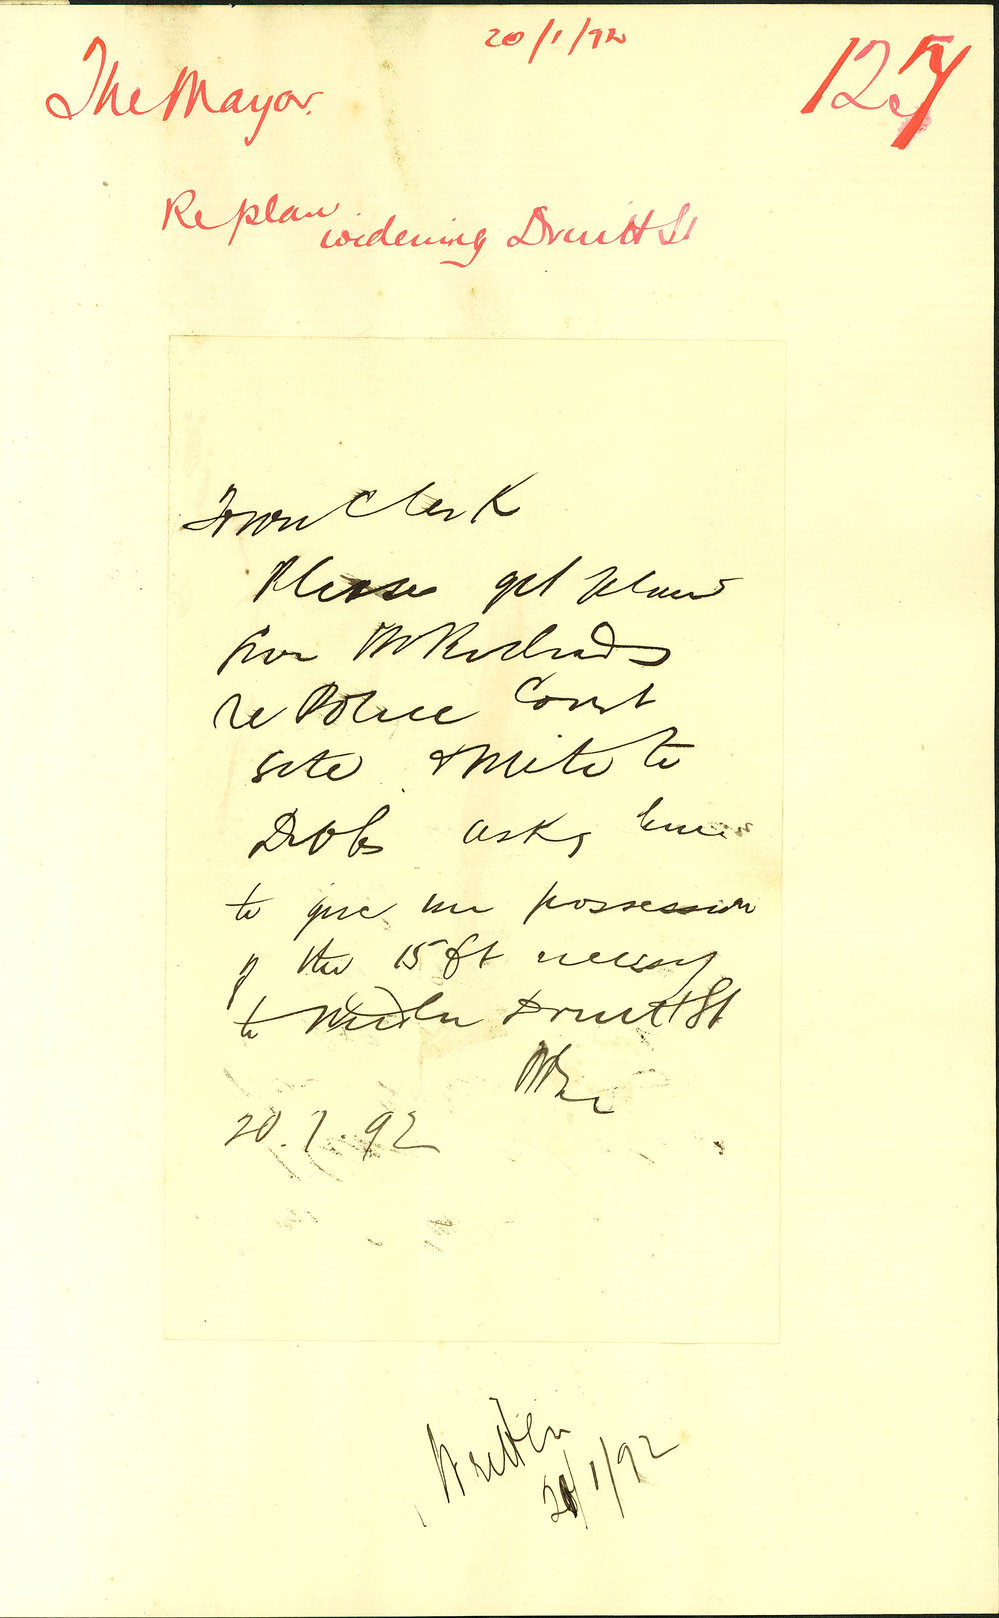 20/1/92
The Mayor.
127
Re plan
widening Druitt St
Town Clerk
Please get plans
from Mr Richards
re Police Court
site & write to
Dibbs asking him
to give me possession
of the 15 ft necessary
to widen Druitt St
20.1.92
Written
20/1/92